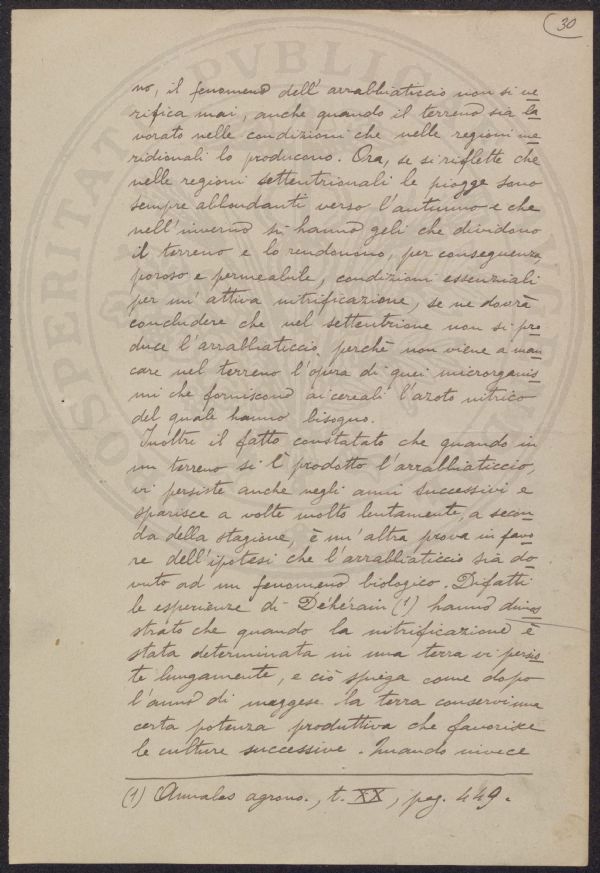 30
no, il fenomeno dell'arrabbiaticcio non si ve
rifica mai, anche quando il terreno sia la
vorato nelle condizioni che nelle regioni me
ridionali lo producono. Ora, se si riflette che
nelle regioni settentrionali le piogge sono
sempre abbondanti verso l'autunno e che
nell'inverno si hanno geli che dividono
il terreno e lo rendonono, per conseguenza,
poroso e permeabile, condizioni essenziali
per un'attiva nitrificazione, se ne dovrà
concludere che nel settentrione non si pro
duce l'arrabbiaticcio, perchè non viene a man
care nel terreno l'opera di quei microrganis
mi che forniscono ai cereali l'azoto nitrico
del quale hanno bisogno.
Inoltre il fatto constatato che quando in
un terreno si è prodotto l'arrabbiaticcio,
vi persiste anche negli anni successivi e
sparisce a volte molto lentamente, a secon
da della stagione, è un'altra prova in favo
re dell'ipotesi che l'arrabbiaticcio sia do
vuto ad un fenomeno biologico. Difatti
le esperienze di Déhérain (1) hanno dimos
strato che quando la nitrificazione è
stata determinata in una terra vi persis
te lungamente, e ciò spiega come dopo
l'anno di maggese la terra conservi una
certa potenza produttiva che favorisce
le culture successive. Quando invece
(1) Annales agrono., t. XX, pag. 449.
PROSPERITAT PUBLICA